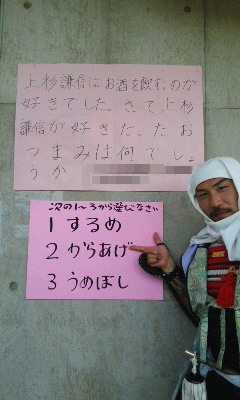 上杉謙信はお酒を飲むのが
好きでした。さて上杉
謙信が好きだったお
つまみは何でしょ
うか
次の1~3から選びなさい
1 するめ
2 からあげ
3 うめぼし